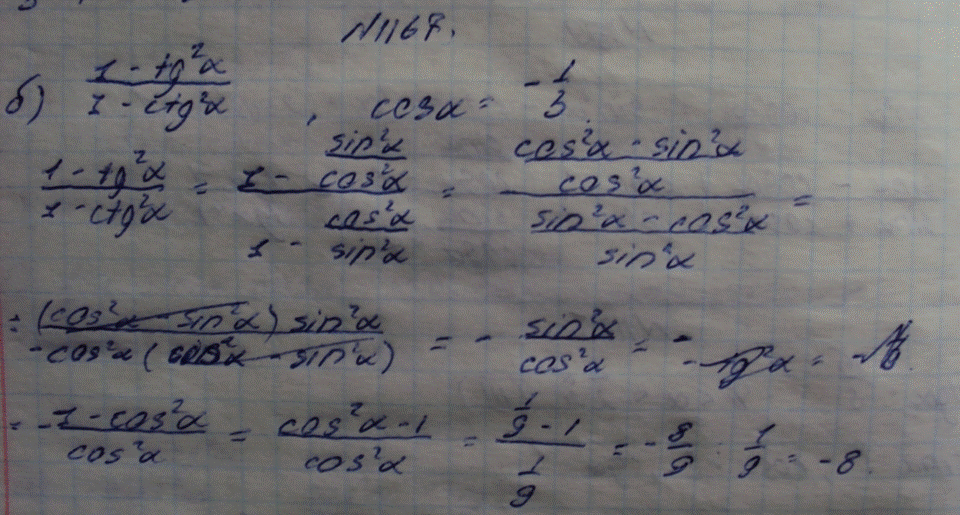 N1167.
б) (1 - tg²α)/(1 - ctg²α), cosα = -1/3
(1 - tg²α)/(1 - ctg²α) = (1 - sin²α/cos²α)/(1 - cos²α/sin²α) = ((cos²α - sin²α)/cos²α)/((sin²α - cos²α)/sin²α) =
= ((cos²α - sin²α) sin²α)/(-cos²α (cos²α - sin²α)) = - sin²α/cos²α =
= - (1 - cos²α)/cos²α = (cos²α - 1)/cos²α = (1/9 - 1)/(1/9) = -8/9 : 1/9 = -8.